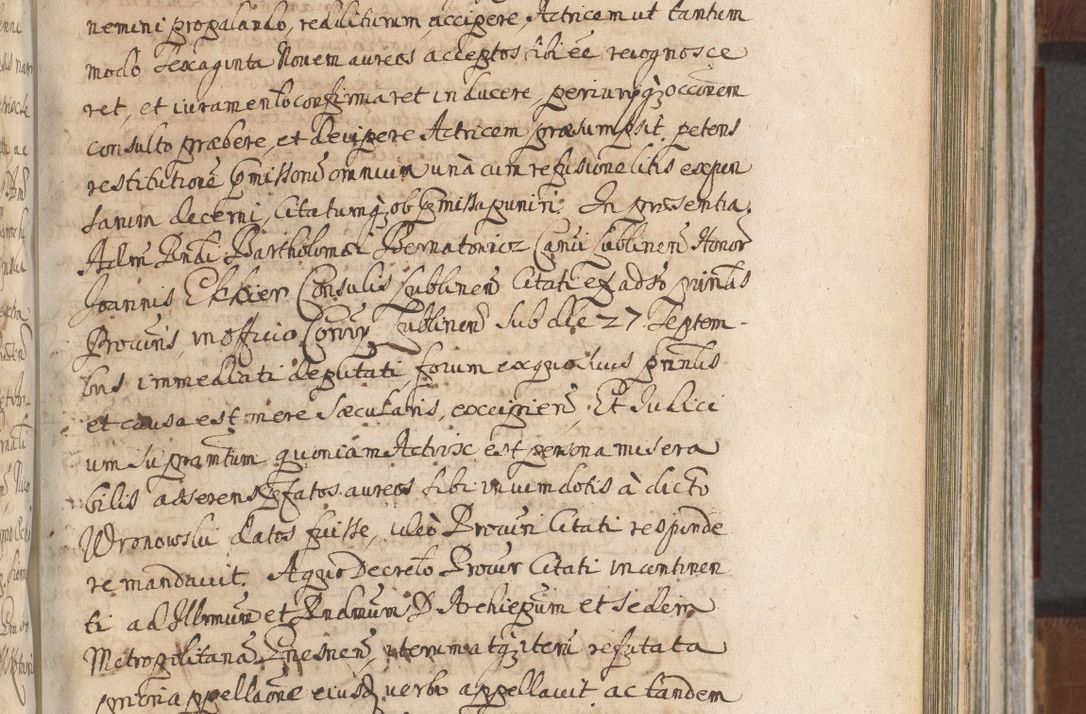 nemini propalando, redditurum, accipere, Actricem ut tantum
modo sexaginta Novem aureos acceptos sibi ee recognosce
ret, et iuramento confirmaret inducere, periurijq occonem
consulto præbere, et decipere Actricem præsumpsit, petens
restitutione pmissoru omnium unà cum refusione litis expen
sarum decerni, Citatumq ob pmissa puniri. In præsentia
Adm Rndi Bartholomæi Bernatowicz Canci Lublinen Honor
Joannis Ekkier Consulis Lublinen Citati ex adso prntis
Procuris, in officio Lublinen sub die 27 Septem-
bris immediati deputati, forum ex quo suus prntis
et causa est mere sæcularis, excipien. Et Judici
um su pramtum quoniam Actrix est persona misera
bilis adserens pfatos aureos sibi in vim dotis à dicto
Wronowski datos fuisse, ideò Procuri Citati responde
re mandavit. A quo Decreto Procur Citati incontinen
ti ad Illrmum et Rndmum D. Archiepum et sedem
Metropolitana Gnesnen, iterum atq iteru refutata
priori appellaone eiusd verbo appellavit ac tandem